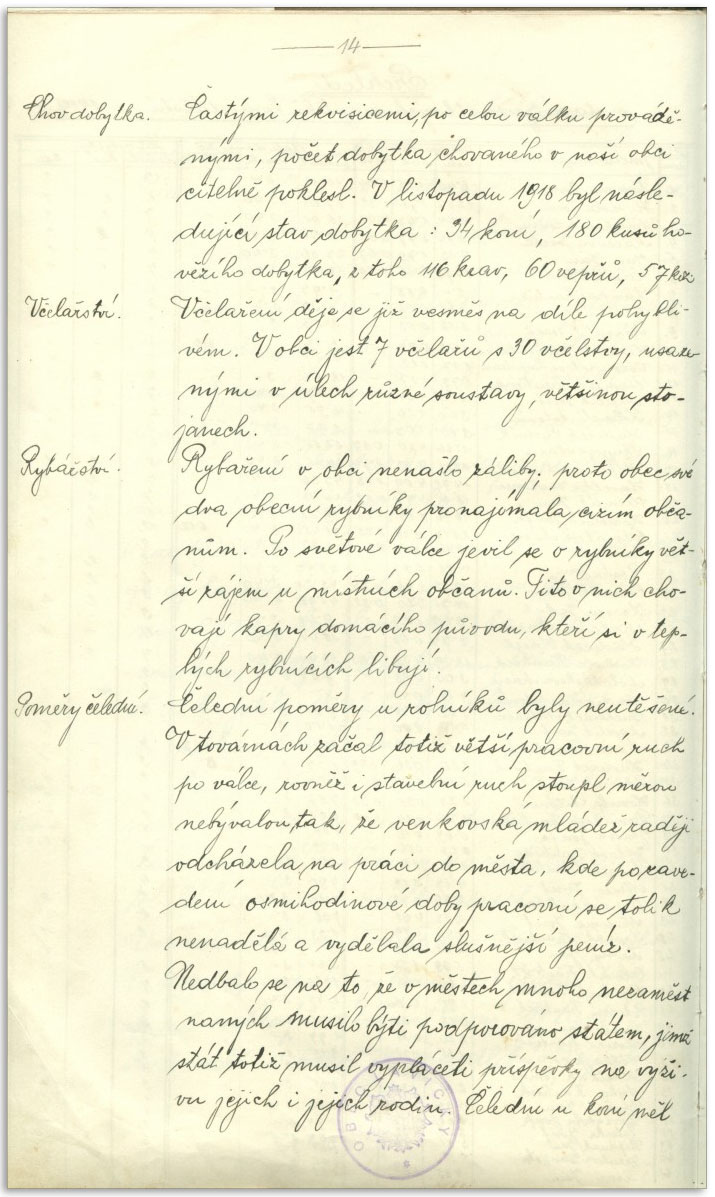 14
Chov dobytka. Častými rekvisicemi, po celou válku prová dě-
nými, počet dobytka chovaného v naší obci
citelně poklesl. V listopadu 1918 byl násle-
dující stav dobytka : 94 koní, 180 kusů ho-
vězího dobytka, z toho 116 krav, 60 vepřů, 57 koz
Včelařství. Včelaření děje se již vesměs na díle pohybli-
vém. V obci jest 7 včelařů s 30 včelstvy, usaze-
nými v úlech různé soustavy, většinou sto-
janech.
Rybářství. Rybaření v obci nenašlo záliby; proto obec své
dva obecní rybníky pronajímala cizím obča-
nům. Po světové válce jevil se o rybníky vět-
ší zájem u místních občanů. Tito v nich cho-
vají kapry domácího původu, kteří si v tep-
lých rybnících libují.
Poměry čelední. Čelední poměry u rolníků byly neutěšené.
V továrnách začal totiž větší pracovní ruch
po válce, rovněž i stavební ruch stoupl měrou
nebývalou tak, že venkovská mládež raději
odcházela na práci do města, kde po zave-
dení osmihodinové doby pracovní se tolik
nenadělá a vydělala slušnější peníz.
Nedbalo se na to, že v městech mnoho nezaměst
naných musilo býti podporováno státem, jimž
stát totiž musil vypláceti příspěvky na výži-
vu jejich i jejich rodin. Čeledín u koní měl